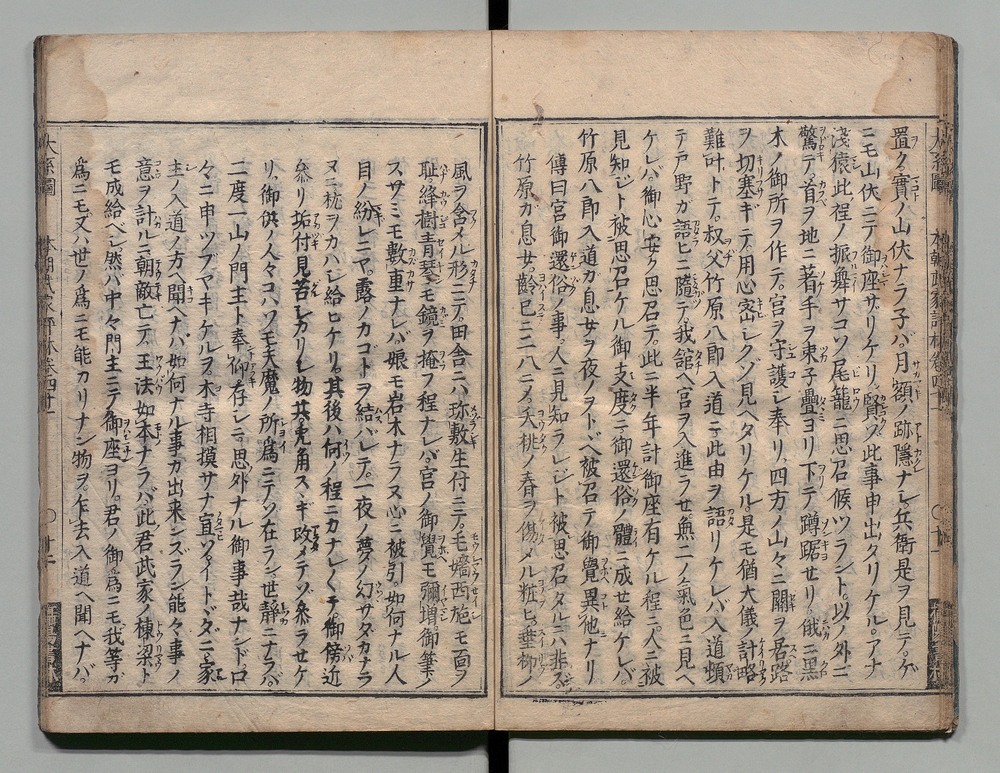 置ク實ノ山伏ナラ子バ月額ノ跡隱ナシ兵衛是ヲ見テゲ
ニモ山伏ニテ御座サリケリ賢クゾ此事申出タリケルアナ
淺猿此程ノ振舞サコソ尾籠ニ思召候ツラント以ノ外ニ
驚テ首ヲ地ニ着手ヲ束子疊ヨリ下テ蹲踞セリ俄ニ黒
木ノ御所ヲ作テ宮ヲ守護シ奉リ四方ノ山々ニ關ヲ居路
ヲ切塞ギテ用心密シクゾ見ヘタリケル是モ猶大儀ノ計略
難叶トテ叔父竹原八郎入道ニ此由ヲ語リケレバ入道頓
テ戸野ガ語ヒニ隨テ我舘ヘ宮ヲ入進ラセ無二ノ氣色ニ見ヘ
ケレバ御心安ク思召テ此ニ半年計御座有ケル程ニ人ニ被
見知ジト被思召ケル御支度ニ御還俗ノ體ニ成セ給ケレバ
竹原八郎入道ガ息女ヲ夜ノヲトヾヘ被召テ御覺異他ナリ
傳曰宮御還俗ノ事人ニ見知ラレジト被思召タルニハ非ズ
竹原ガ息女齡已ニ二八ニメ夭桃ノ春ヲ傷メル粧ヒ垂柳ノ
風ヲ含メル形ニテ田舎ニハ珎敷生付ニテ毛嬙西施モ面ヲ
耻絳樹青琴モ鏡ヲ掩フ程ナレバ宮ノ御覺モ彌増御筆ノ
スサミモ數重ナレバ娘モ岩木ナラヌ心ニ被引如何ナル人
目ノ紛レニマ露ノカコトヲ結バレテ一夜ノ夢ノ幻サタカナラ
ヌニ枕ヲカハシ給ヒケリ其後ハ何ノ程ニカナレ〱テ御傍近
參リ垢付見苦シカリシ物共兎角スヽギ改メテゾ參ラセケ
リ御供ノ人々コハソモ天魔ノ所爲ニテゾ在ラン世靜ニナラバ
二度一山ノ門主ト奉仰存シニ思外ナル御事哉ナンド口
々ニ申ツブマキケルヲ木寺相摸サナ宣ソイトヾダニ家
主ノ入道ノ方ヘ聞ヘナバ如何ナル事カ出来ンズラン能々事ノ
意ヲ計ルニ朝敵亡テ王法如本ナラバ此君武家ノ棟梁ト
モ成給ベシ然バ中々門主ニテ御座ヨリ君ノ御爲ニモ我等ガ
爲ニモ又ハ世ノ爲ニモ能カリナン物ヲ乍去入道ヘ聞ヘナバ